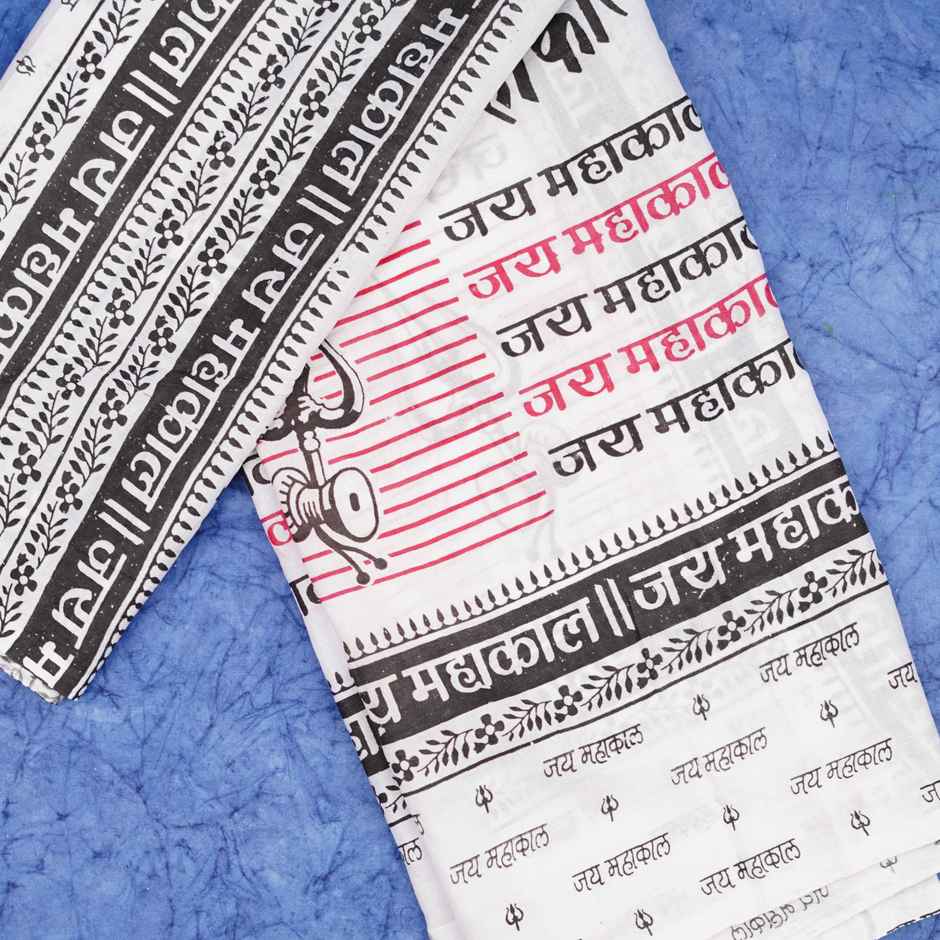 महाकाल || जय महाकाल
जय महाकाल || जय महाकाल || जय म
जय महाकाल
जय महाकाल
जय महाकाल
जय महाकाल
जय महाकाल
जय महाकाल || जय महाकाल
जय महाकाल
जय
जय महाकाल
जय महाकाल
जय महाकाल
जय महाकाल
जय महाकाल
जय महाकाल